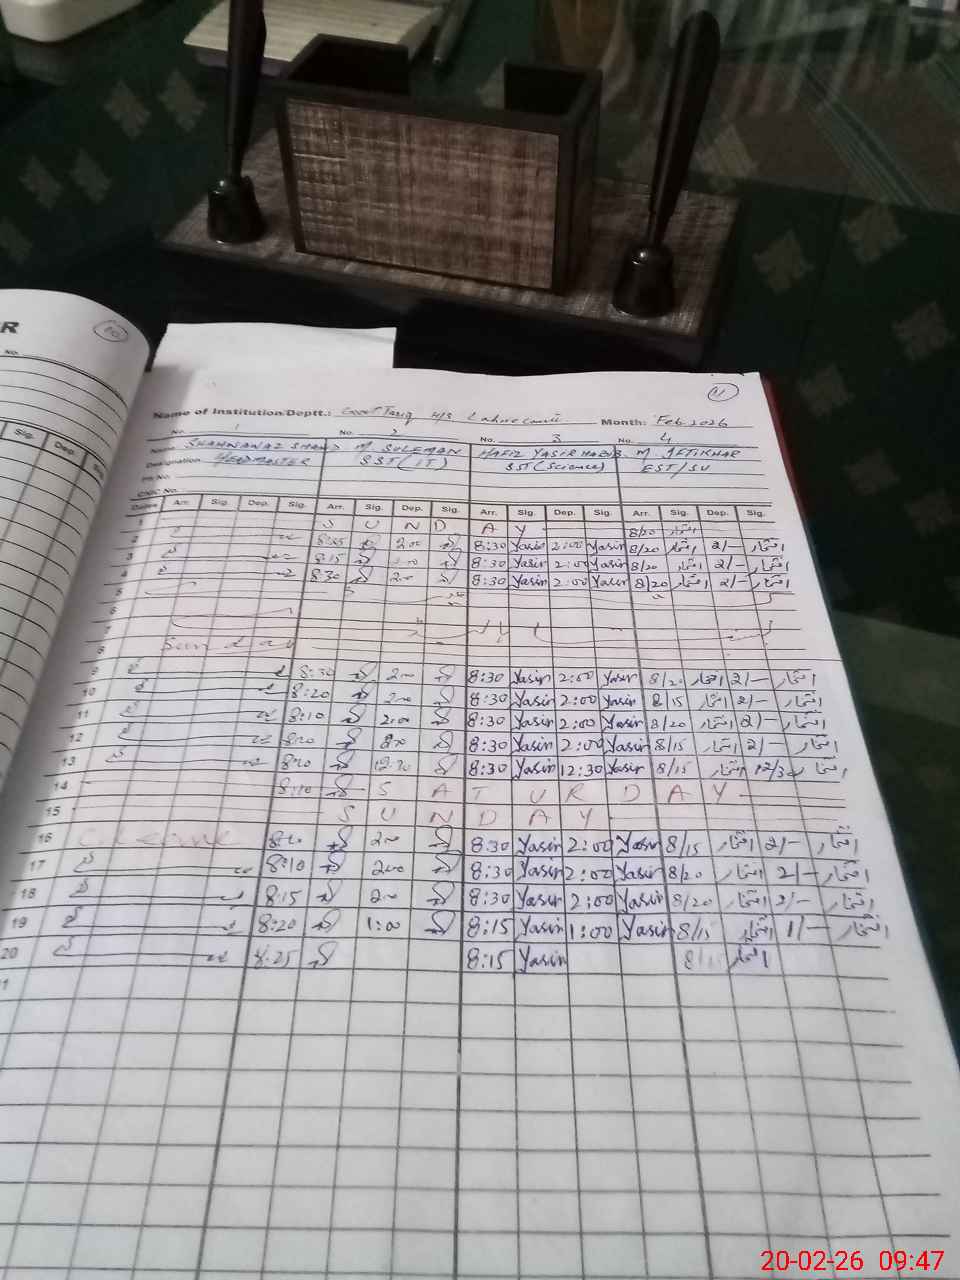 R
No.
Sig.
Dep.
Sig.
41
Name of Institution/Deptt.: Govt Tariq H/S Lahore Cantt Month: Feb 2026
No. 1 No. 2 No. 3 No. 4
Name SHAHNAWAZ M SULEMAN HAFIZ YASIR HABIB M IFTIKHAR
Designation HEADMASTER SST (IT) SST (Science) EST/SV
CNIC No.
Dates Arr. Sig. Dep. Sig. Arr. Sig. Dep. Sig. Arr. Sig. Dep. Sig. Arr. Sig. Dep. Sig.
1 S U N D A Y 8/20 افتخار
2 200 8:30 Yasir 2:00 Yasir 8/20 افتخار 2/- افتخار
3 8:15 200 8:30 Yasir 2:00 Yasir 8/20 افتخار 2/- افتخار
4 8:30 200 8:30 Yasir 2:00 Yasir 8/20 افتخار 2/- افتخار
5
6
7
8 Sunday
9 8:30 200 8:30 Yasir 2:00 Yasir 8/20 افتخار 2/- افتخار
10 8:20 200 8:30 Yasir 2:00 Yasir 8/15 افتخار 2/- افتخار
11 8:10 2:00 8:30 Yasir 2:00 Yasir 8/20 افتخار 2/- افتخار
12 8:20 200 8:30 Yasir 2:00 Yasir 8/15 افتخار 2/- افتخار
13 8:20 12:30 8:30 Yasir 12:30 Yasir 8/15 افتخار 12/30 افتخار
14 8:10 S A T U R D A Y
15 S U N D A Y
16 C. Leave 200 8:30 Yasir 2:00 Yasir 8/15 افتخار 2/- افتخار
17 8:10 200 8:30 Yasir 2:00 Yasir 8/20 افتخار 2/- افتخار
18 8:15 200 8:30 Yasir 2:00 Yasir 8/20 افتخار 2/- افتخار
19 8:20 1:00 8:15 Yasir 1:00 Yasir 8/15 افتخار 1/- افتخار
20 8:25 8:15 Yasir 8/15 افتخار
20-02-26 09:47